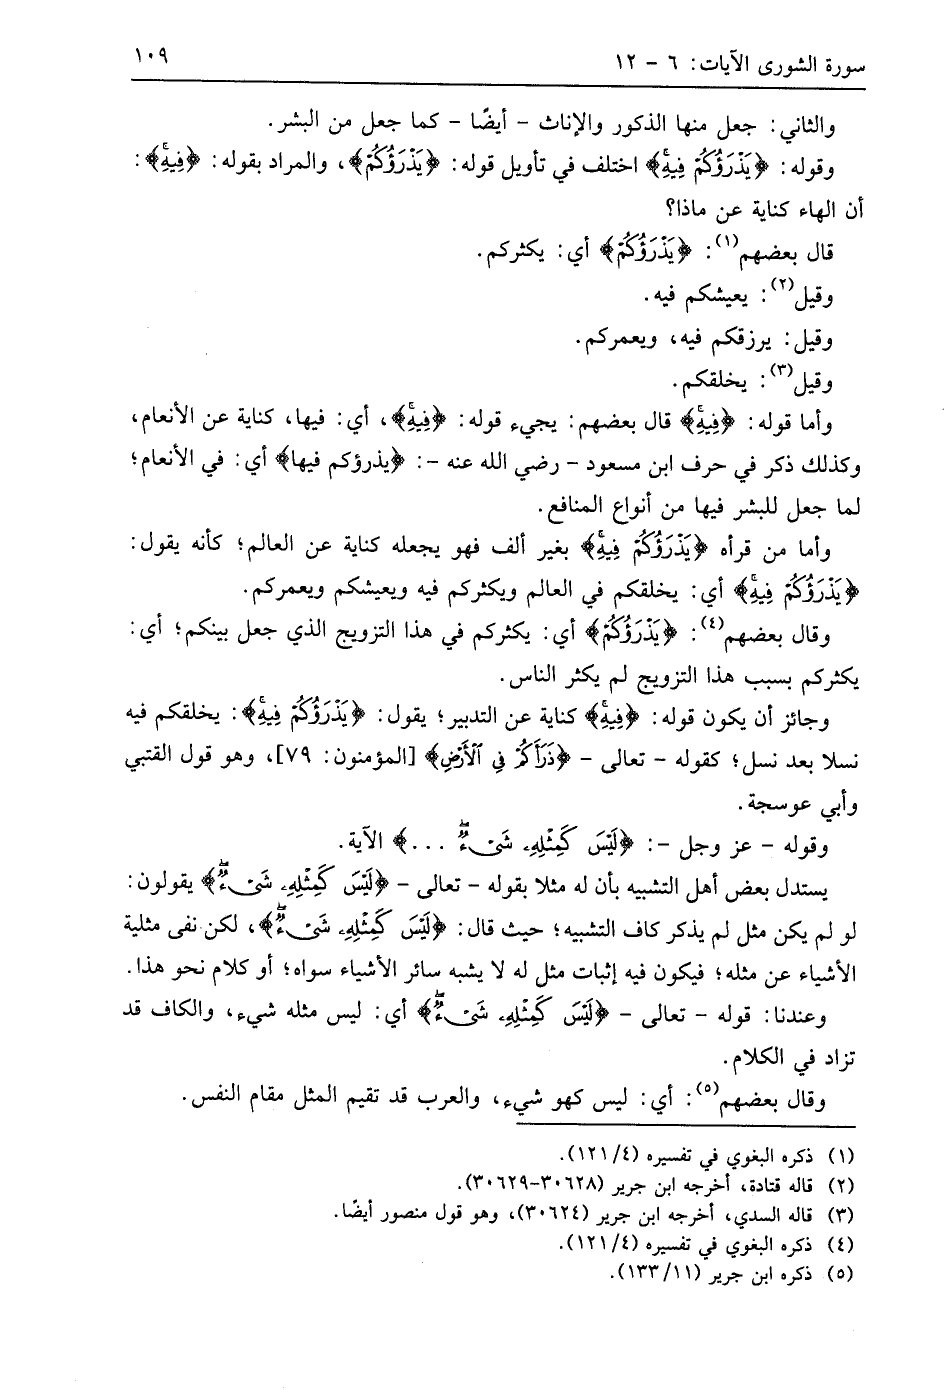 سورة الشورى الآيات: ٦ - ١٢ ١٠٩
والثاني: جعل منها الذكور والإناث - أيضًا - كما جعل من البشر.
وقوله: ﴿يَذْرَؤُكُمْ فِيهِۚ﴾ اختلف في تأويل قوله: ﴿يَذْرَؤُكُمْ﴾، والمراد بقوله: ﴿فِيهِۚ﴾:
أن الهاء كناية عن ماذا؟
قال بعضهم(١): ﴿يَذْرَؤُكُمْ﴾ أي: يكثركم.
وقيل(٢): يعيشكم فيه.
وقيل: يرزقكم فيه، ويعمركم.
وقيل(٣): يخلقكم.
وأما قوله: ﴿فِيهِۚ﴾ قال بعضهم: يجيء قوله: ﴿فِيهِۚ﴾، أي: فيها، كناية عن الأنعام،
وكذلك ذكر في حرف ابن مسعود - رضي الله عنه -: ﴿يذرؤكم فيها﴾ أي: في الأنعام؛
لما جعل للبشر فيها من أنواع المنافع.
وأما من قرأه ﴿يَذْرَؤُكُمْ فِيهِۚ﴾ بغير ألف فهو يجعله كناية عن العالم؛ كأنه يقول:
﴿يَذْرَؤُكُمْ فِيهِۚ﴾ أي: يخلقكم في العالم ويكثركم فيه ويعيشكم ويعمركم.
وقال بعضهم(٤): ﴿يَذْرَؤُكُمْ﴾ أي: يكثركم في هذا التزويج الذي جعل بينكم؛ أي:
يكثركم بسبب هذا التزويج لم يكثر الناس.
وجائز أن يكون قوله: ﴿فِيهِۚ﴾ كناية عن التدبير؛ يقول: ﴿يَذْرَؤُكُمْ فِيهِۚ﴾: يخلقكم فيه
نسلا بعد نسل؛ كقوله - تعالى - ﴿ذَرَأَكُمْ فِي ٱلْأَرْضِ﴾ [المؤمنون: ٧٩]، وهو قول القتبي
وأبي عوسجة.
وقوله - عز وجل -: ﴿لَيْسَ كَمِثْلِهِۦ شَىْءٌۖ ...﴾ الآية.
يستدل بعض أهل التشبيه بأن له مثلا بقوله - تعالى - ﴿لَيْسَ كَمِثْلِهِۦ شَىْءٌۖ﴾ يقولون:
لو لم يكن مثل لم يذكر كاف التشبيه؛ حيث قال: ﴿لَيْسَ كَمِثْلِهِۦ شَىْءٌۖ﴾، لكن نفى مثلية
الأشياء عن مثله؛ فيكون فيه إثبات مثل له لا يشبه سائر الأشياء سواه؛ أو كلام نحو هذا.
وعندنا: قوله - تعالى - ﴿لَيْسَ كَمِثْلِهِۦ شَىْءٌۖ﴾ أي: ليس مثله شيء، والكاف قد
تزاد في الكلام.
وقال بعضهم(٥): أي: ليس كهو شيء، والعرب قد تقيم المثل مقام النفس.
(١) ذكره البغوي في تفسيره (١٢١/٤).
(٢) قاله قتادة، أخرجه ابن جرير (٣٠٦٢٨-٣٠٦٢٩).
(٣) قاله السدي، أخرجه ابن جرير (٣٠٦٢٤)، وهو قول منصور أيضًا.
(٤) ذكره البغوي في تفسيره (١٢١/٤).
(٥) ذكره ابن جرير (١٣٣/١١).